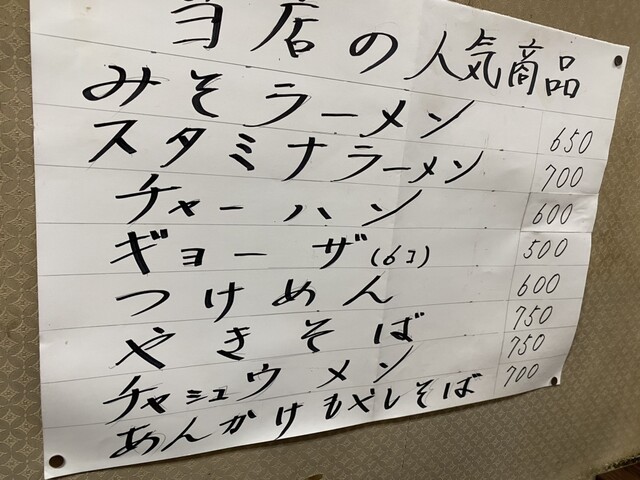 当店の人気商品
みそラーメン 650
スタミナラーメン 700
チャーハン 600
ギョーザ(6コ) 500
つけめん 600
やきそば 750
チャシュウメン 750
あんかけもやしそば 700